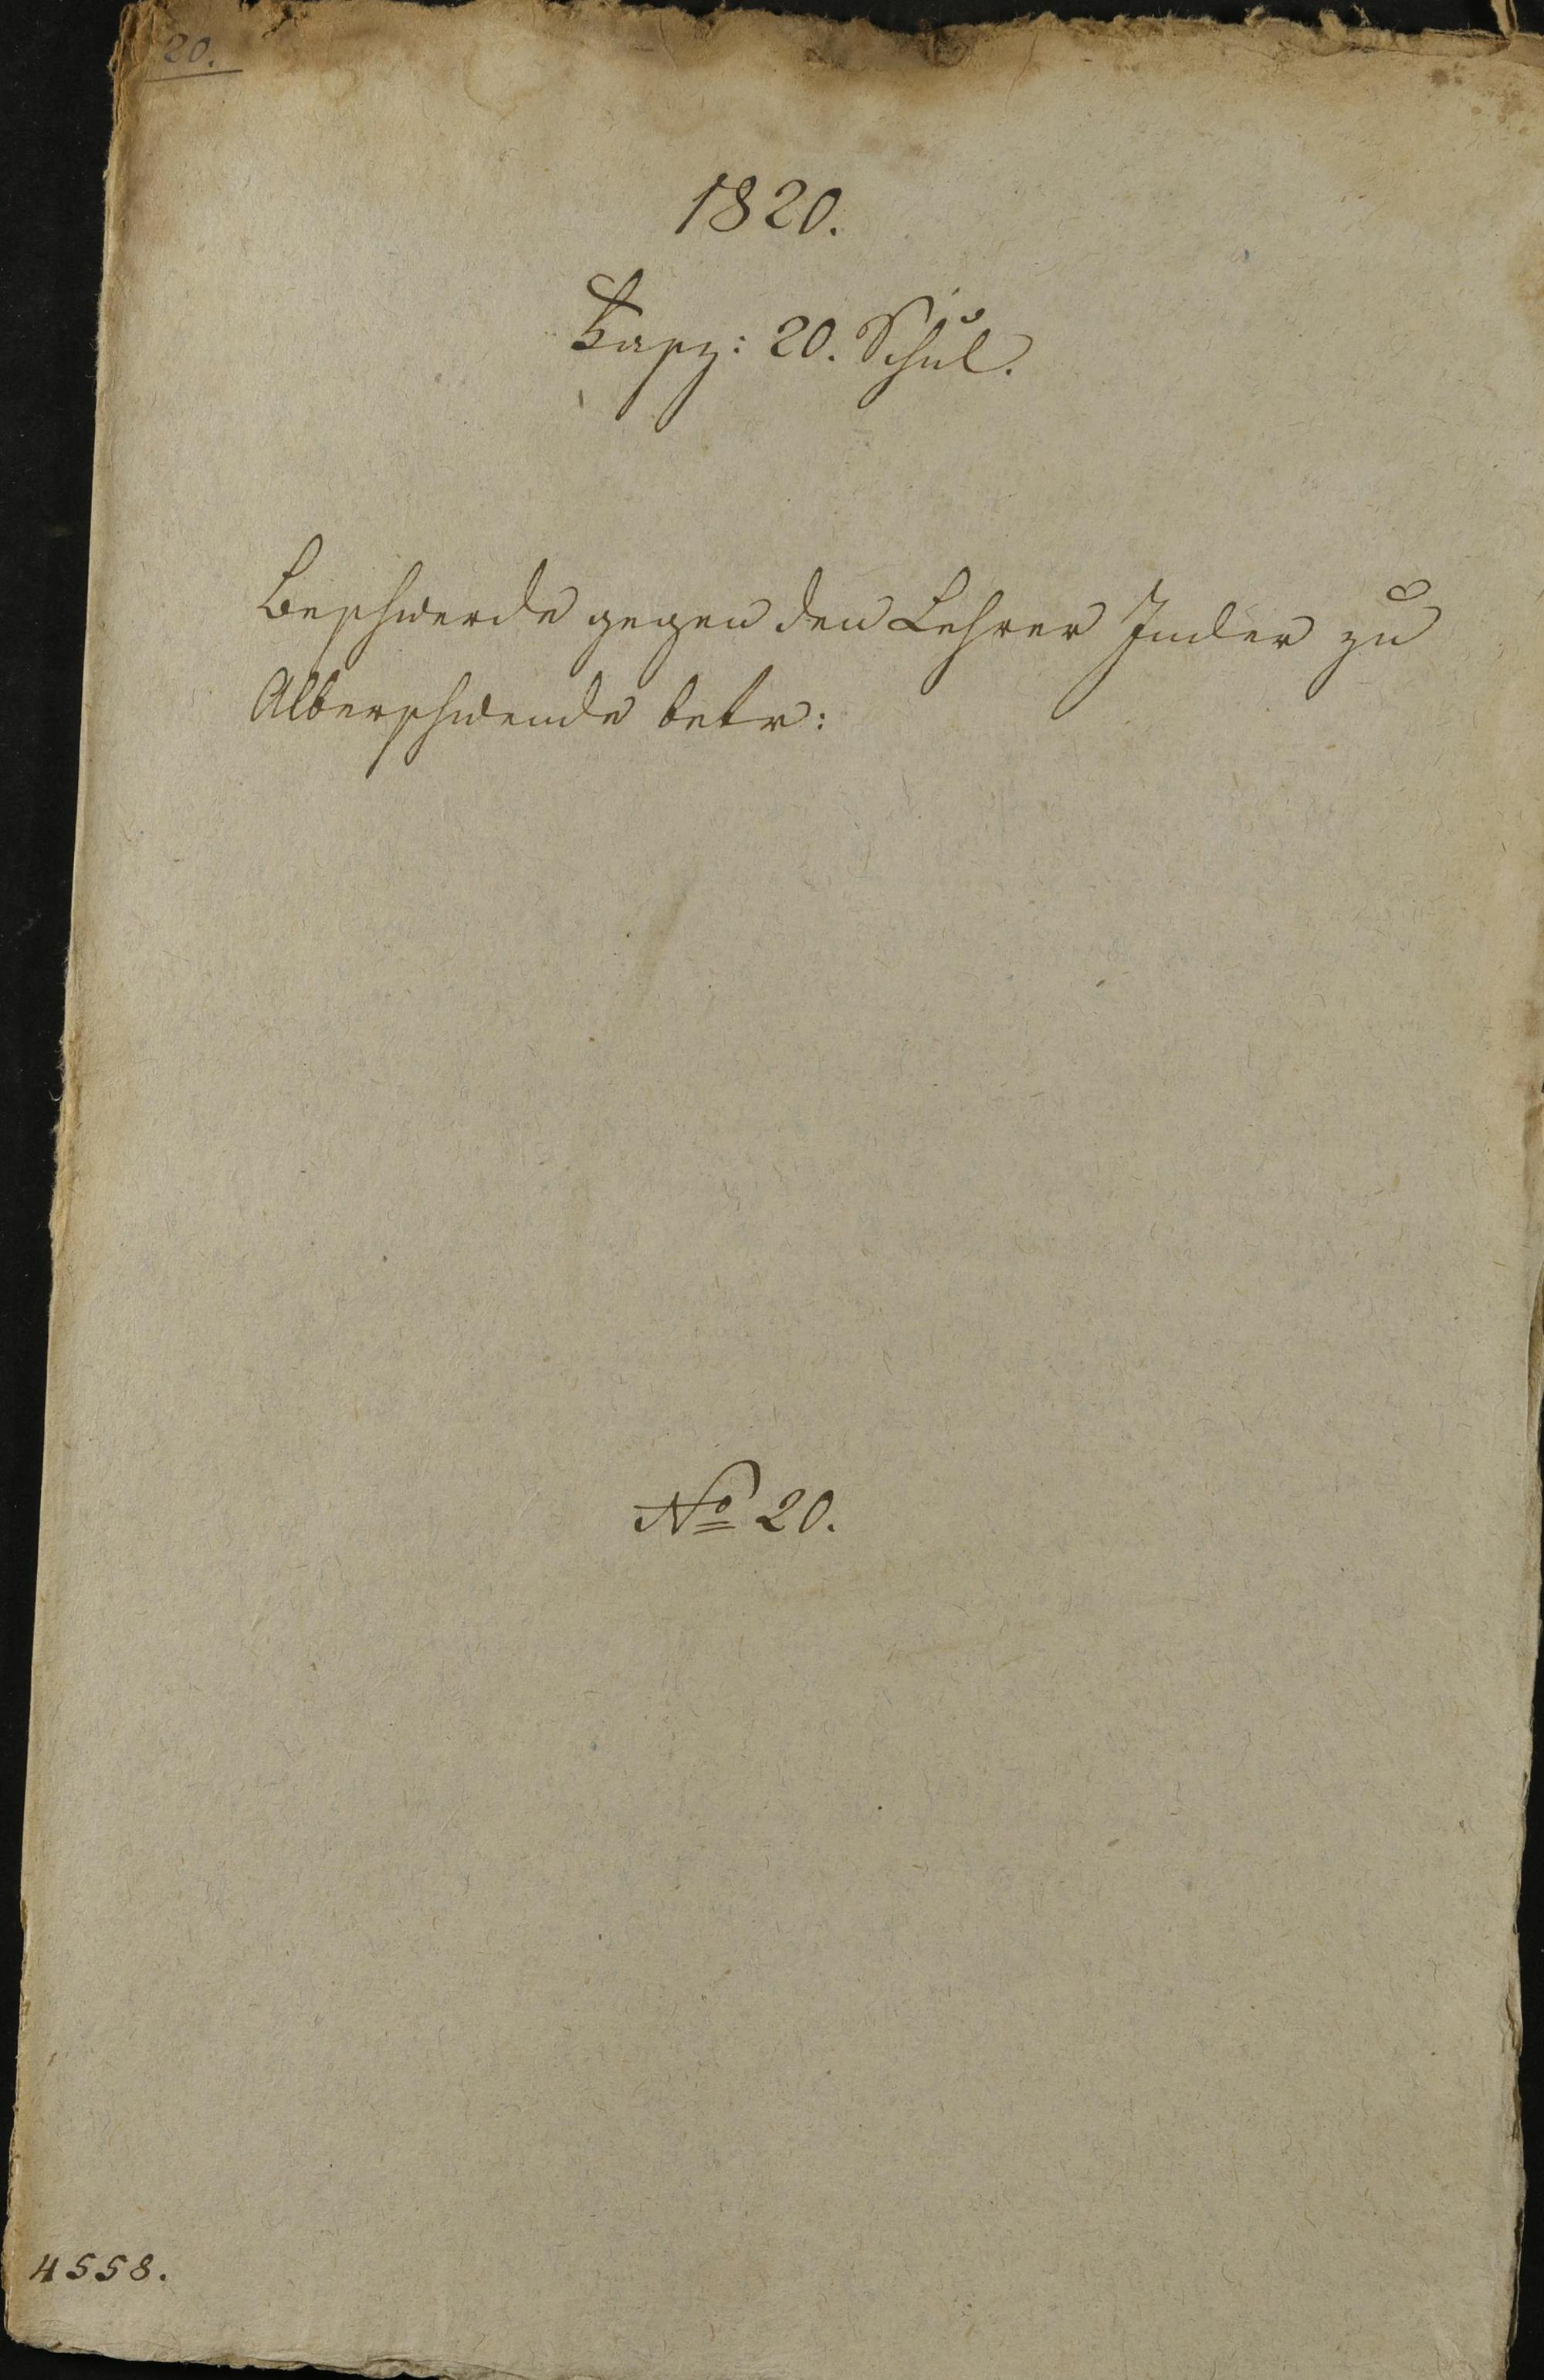 20.
1820.
Fasz: 20. Schul.
Beschwerde gegen den Lehrer Inder zu
Alberschwende betr:
No 20.
4558.